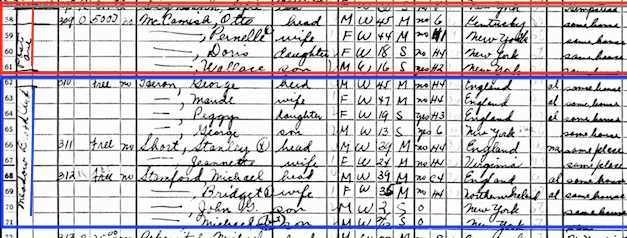 58 309 0 5000 no McCamish, Otto head M W 45 M no 6 Kentucky same house
59 —, Pernelle wife F W 44 M no H4 New York same house
60 —, Doris daughter F W 18 S no H4 New York same house
61 —, Wallace son M W 16 S yes H2 New York same house
62 310 Free no George head M W 45 M no H4 England al same house
—, Maude wife F W 47 M no H4 England al same house
—, Peggy daughter F W 19 S yes H3 England al same house
65 —, George son M W 13 S yes 6 New York same house
66 311 Free no Short, Stanley head M W 29 M no H4 England na same place
—, Jeannette wife F W 24 M no H4 Virginia same place
68 312 Free no Stamford Michael head M W 39 M no C4 England al same house
69 —, Bridget wife F W 35 M no H4 Northern Ireland al same house
70 —, John G. son M W 2 S 0 New York same house
71 —, Michael son M W S 0 New York
Meadow